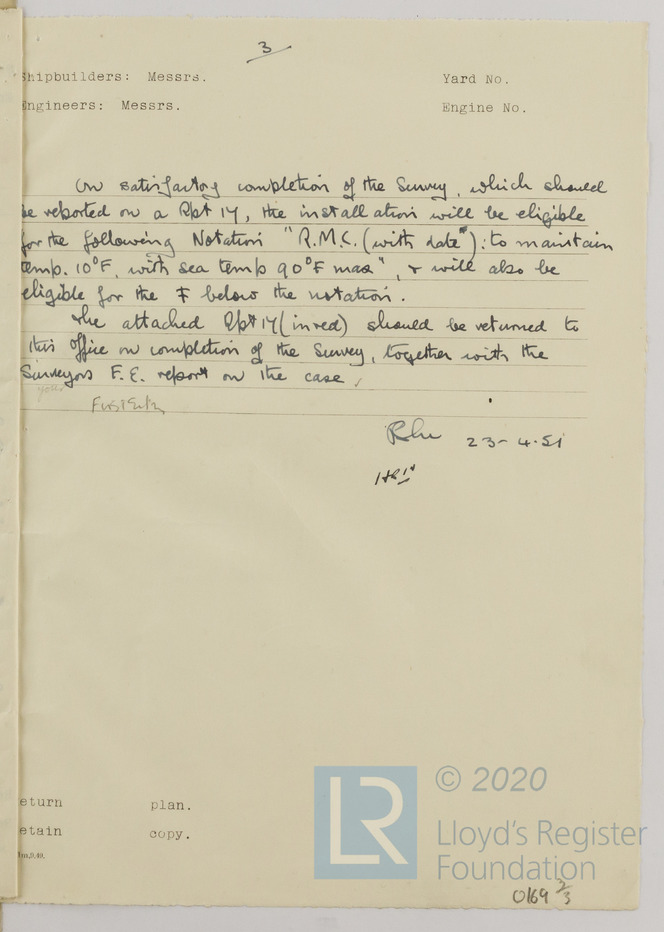 3
Shipbuilders: Messrs. Yard No.
Engineers: Messrs. Engine No.
On satisfactory completion of the Survey, which should
be reported on a Rpt 14, the installation will be eligible
for the following Notation "R.M.C. (with date*): to maintain
temp. 10°F, with sea temp 90°F max", & will also be
eligible for the Ŧ below the notation.
The attached Rpt 14 (in red) should be returned to
this Office on completion of the Survey, together with the
Surveyors F.E. report on the case.
your
First Entry
23-4-51
eturn plan.
etain copy.
LR
© 2020
Lloyd's Register
Foundation
0169 2/3